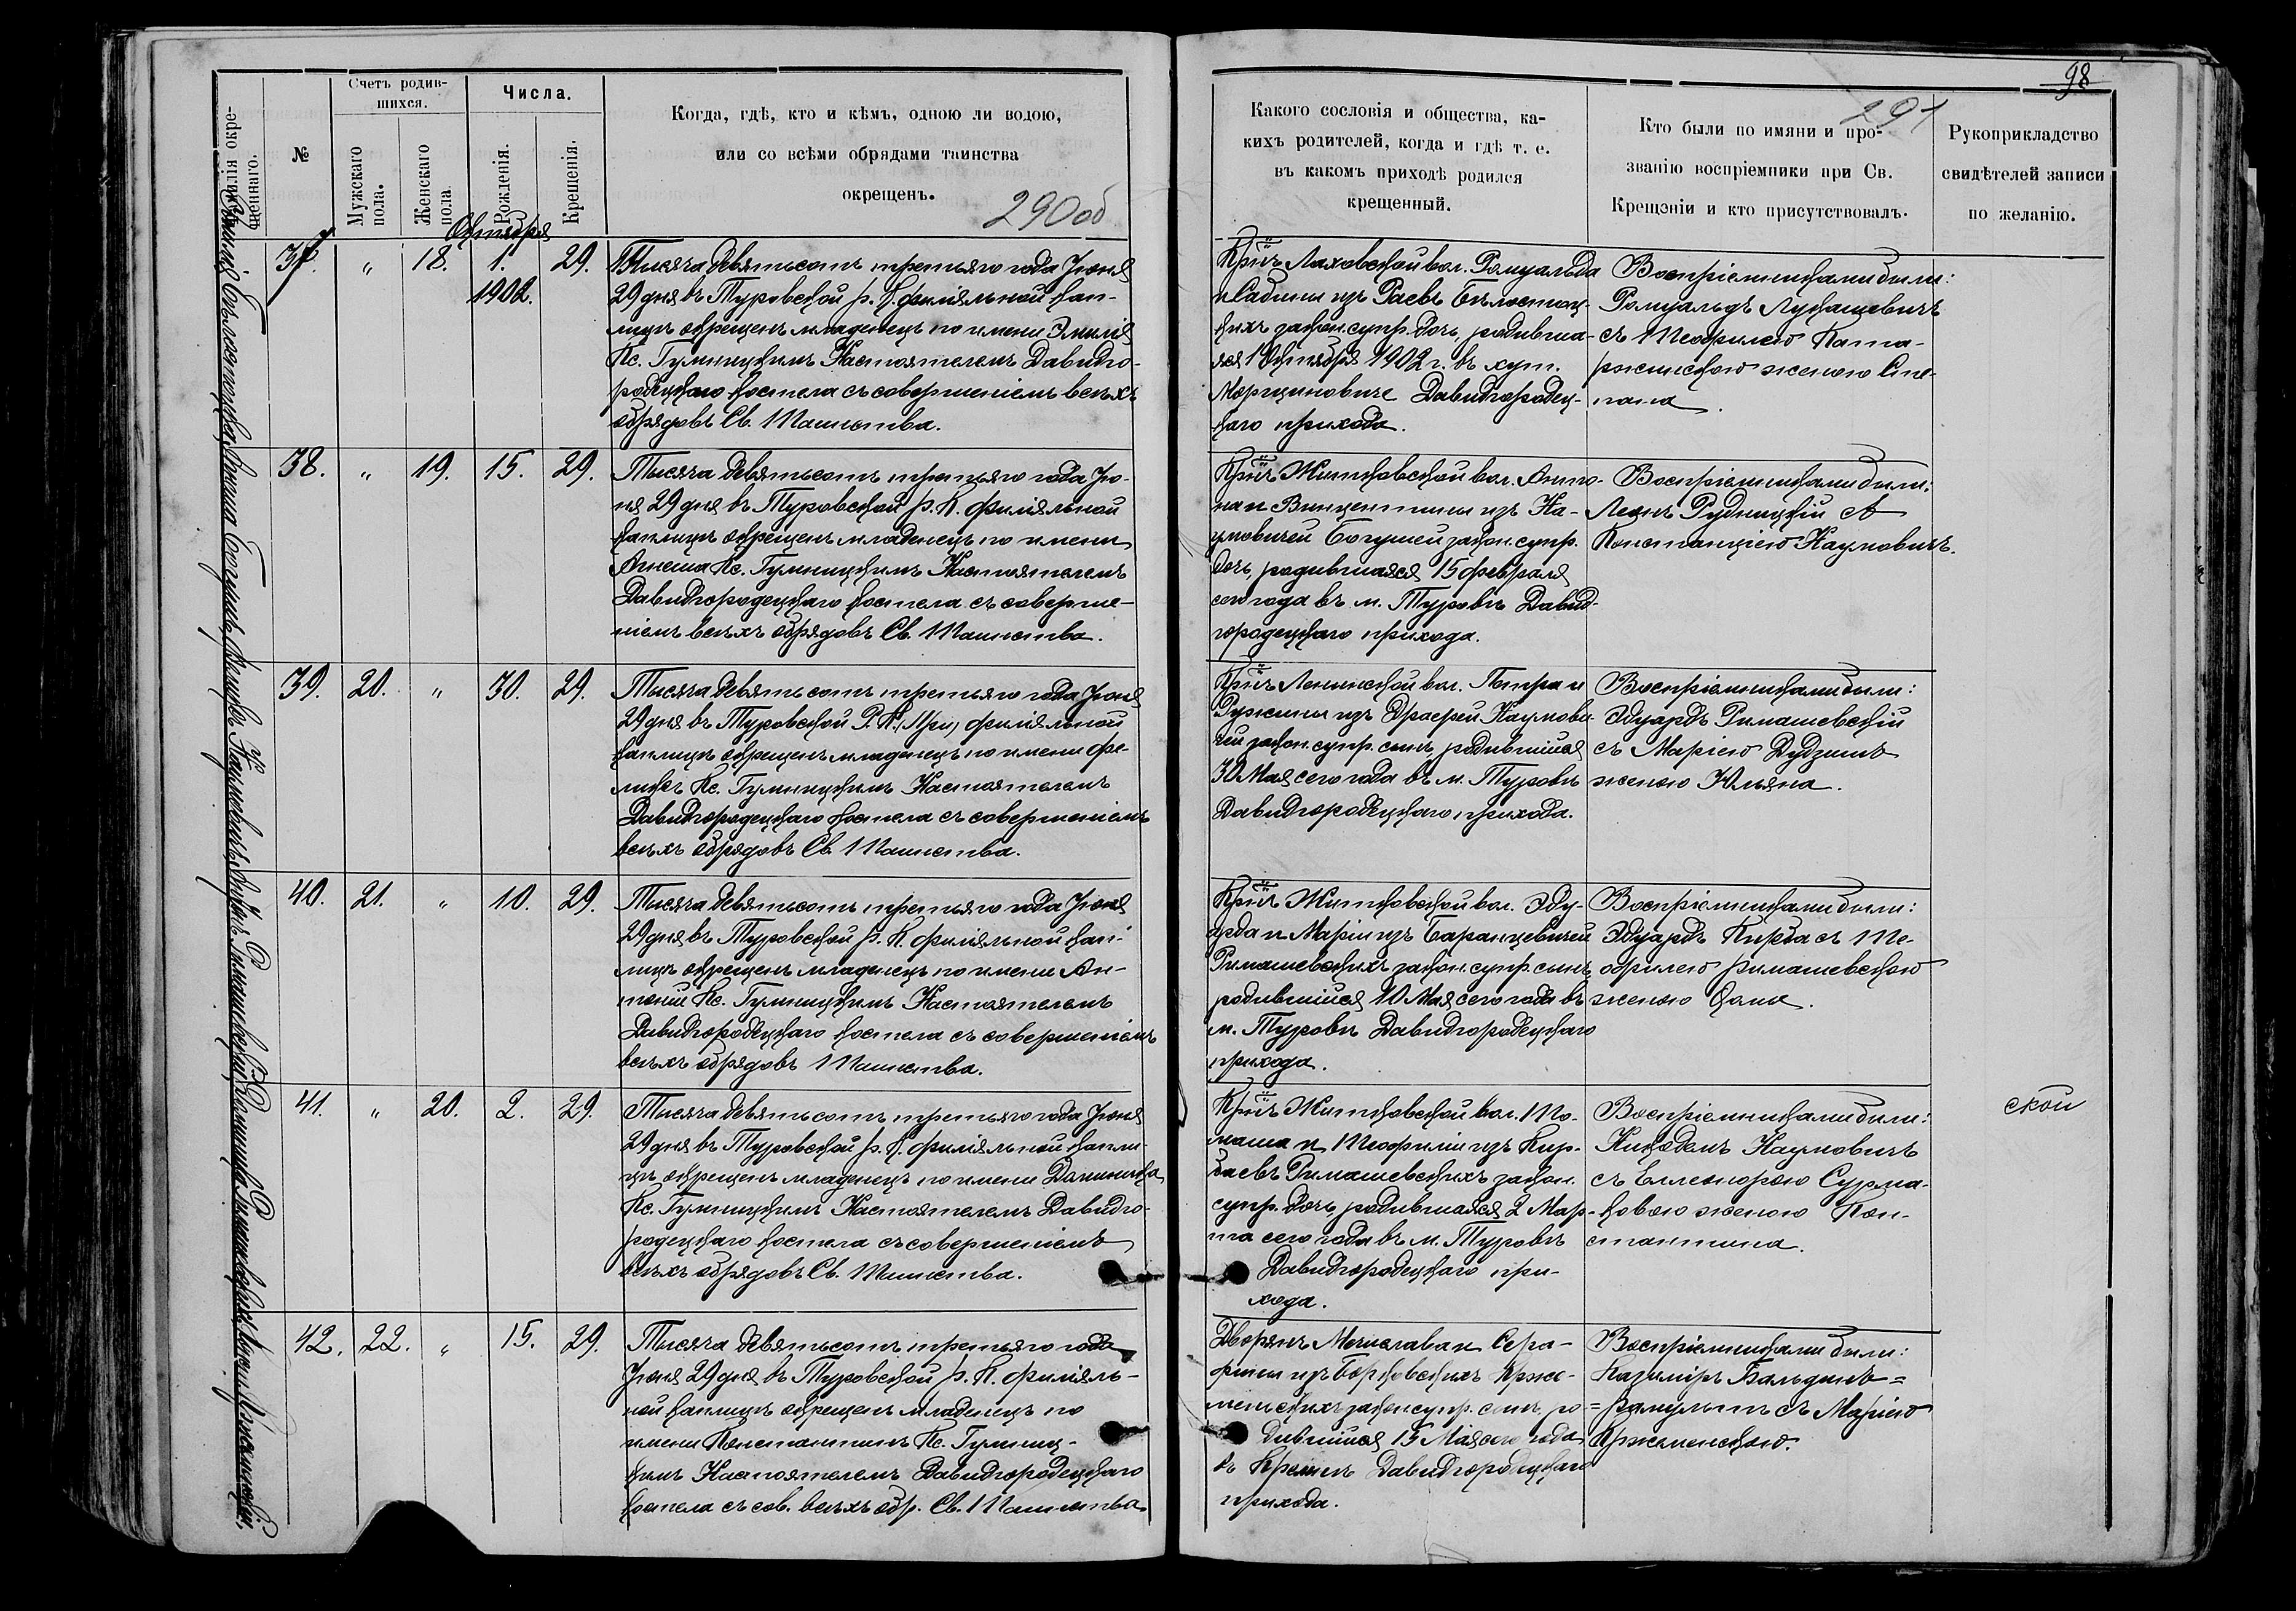 98
290об
291
Счетъ родив-
шихся.
Числа.
Когда, гдѣ, кто и кѣмъ, одною ли водою,
или со всѣми обрядами таинства
окрещенъ.
Фамилія окре-
щеннаго.
№
Мужскаго
пола.
Женскаго
пола
Рожденія.
Крещенія.
Какого сословія и общества, ка-
кихъ родителей, когда и гдѣ т. е.
въ какомъ приходѣ родился
крещенный.
Кто были по имяни и про-
званію воспріемники при Св.
Крещэніи и кто присутствовалъ.
Рукоприкладство
свидѣтелей записи
по желанію.
Октября
37. " 18. 1. 29.
1902.
Тысяча девятьсотъ третьяго года Іюня
29 дня въ Туровской р. К. филіяльной кап-
лицѣ окрещенъ младенецъ по имени Эмилія
Кс. Гумницкимъ Настоятелемъ Давидго-
родецкаго костела съ совершеніемъ всѣхъ
обрядовъ Св. Таинства.
Кр-нъ Лаховской вол. Ромуальда
и Сабины изъ Раевъ Бѣлостоц-
кихъ закон. супр. дочь, родивша-
яся 1 Октября 1902 г. въ хут.
Морциновиче Давидгородец-
каго прихода.
Воспріемниками были:
Ромуальдъ Лукашевичъ
съ Теофилею Ката-
ржинскою женою Сте-
пана.
38. " 19. 15. 29.
Тысяча девятьсотъ третьяго года Ію-
ня 29 дня въ Туровской р. К. филіяльной
каплицѣ окрещенъ младенецъ по имени
Анеша Кс. Гумницкимъ Настоятелемъ
Давидгородецкаго костела съ соверше-
ніемъ всѣхъ обрядовъ Св. Таинства.
Кр-нъ Житковской вол. Анто-
на и Винцентины изъ На-
умовичей Богушей закон. супр.
дочь, родившаяся 15 февраля
сего года въ м. Туровѣ Давид-
городецкаго прихода.
Воспріемниками были:
Леонъ Рудницкій съ
Констанціею Наумовичъ.
39. 20. " 30. 29.
Тысяча девятьсотъ третьяго года Іюня
29 дня въ Туровской Р. К. филіяльной
каплицѣ окрещенъ младенецъ по имени Фе-
ликсъ Кс. Гумницкимъ Настоятелемъ
Давидгородецкаго костела съ совершеніемъ
всѣхъ обрядовъ Св. Таинства.
Кр-нъ Ленинской вол. Петра и
Ружины изъ Наумови-
чей закон. супр. сынъ, родившійся
30 Мая сего года въ м. Туровѣ
Давидгородецкаго прихода.
Воспріемниками были:
Эдуардъ Римашевскій
съ Маріею Дудзинъ
женою Юльяна.
40. 21. " 10. 29.
Тысяча девятьсотъ третьяго года Іюня
29 дня въ Туровской р. К. филіяльной кап-
лицѣ окрещенъ младенецъ по имени Ан-
тоній Кс. Гумницкимъ Настоятелемъ
Давидгородецкаго костела съ совершеніемъ
всѣхъ обрядовъ Таинства.
Кр-нъ Житковской вол. Эду-
арда и Маріи изъ Баранцевичей
Римашевскихъ закон. супр. сынъ,
родившійся 10 Мая сего года въ
м. Туровѣ Давидгородецкаго
прихода.
Воспріемниками были:
Эдуардъ Кирба съ Те-
офилею Римашевскою
женою Фомы.
41. " 20. 2. 29.
Тысяча девятьсотъ третьяго года Іюня
29 дня въ Туровской р. К. филіяльной капли-
цѣ окрещенъ младенецъ по имени Доминика
Кс. Гумницкимъ Настоятелемъ Давидго-
родецкаго костела съ совершеніемъ
всѣхъ обрядовъ Св. Таинства.
Кр-нъ Житковской вол. То-
маша и Теофиліи изъ Кир-
баевъ Римашевскихъ закон.
супр. дочь, родившаяся 2 Мар-
та сего года въ м. Туровѣ
Давидгородецкаго при-
хода.
Воспріемниками были:
Никодемъ Наумовичъ
съ Еленорою Сурма-
ковою женою Кон-
стантина.
ской
42. 22. " 15. 29.
Тысяча девятьсотъ третьяго года
Іюня 29 дня въ Туровской р. К. филіяль-
ной каплицѣ окрещенъ младенецъ по
имени Константинъ Кс. Гумниц-
кимъ Настоятелемъ Давидгородецкаго
костела съ сов. всѣхъ обр. Св. Таинства
Дворянъ Мечислава и Сера-
фины изъ Борковскихъ Крже-
менскихъ закон. супр. сынъ, ро-
дившійся 15 Мая сего года
въ Кремнѣ Давидгородецкаго
прихода.
Воспріемниками были:
Казиміръ Бальдинъ=
=Рамультъ съ Маріею
Кржеменскою.